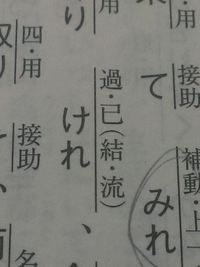 ・用 接助 補動・上一
て みれ
過・已(結・流)
り けれ、
四・用 接助 名
り 、